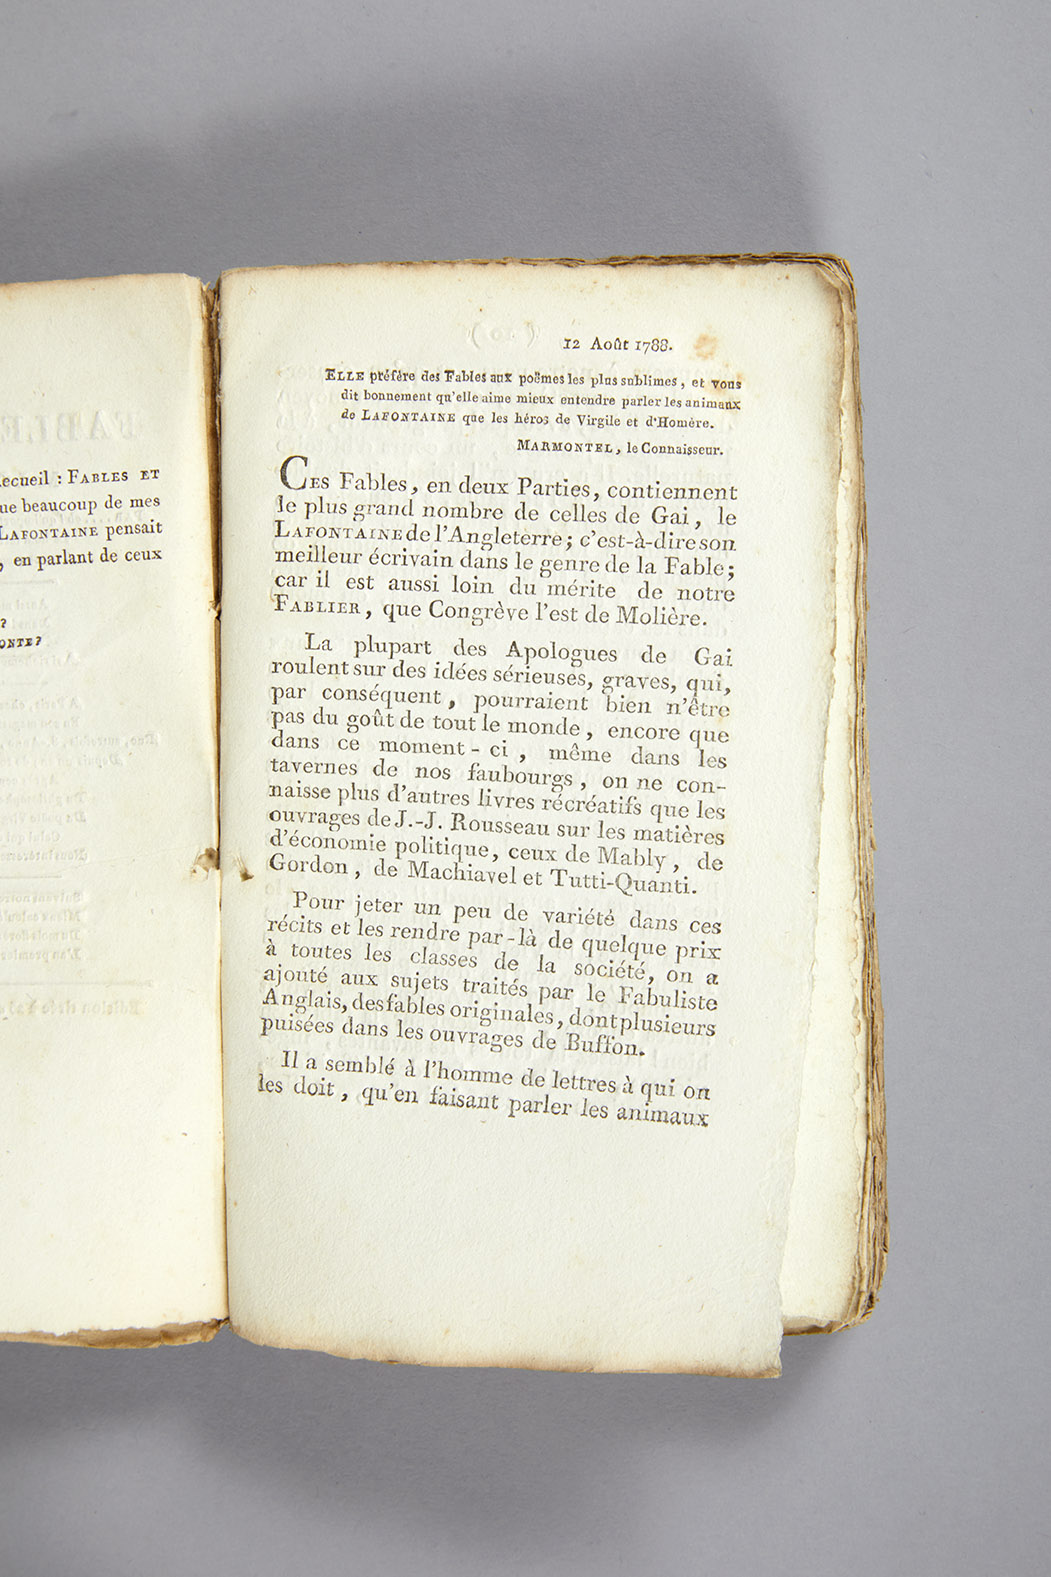 ecueil : FABLES ET
ue beaucoup de mes
LAFONTAINE pensait
, en parlant de ceux
?
ONTE?
12 Août 1788.
ELLE préfére des Fables aux poëmes les plus sublimes, et vous
dit bonnement qu'elle aime mieux entendre parler les animaux
de LAFONTAINE que les héros de Virgile et d'Homère.
MARMONTEL, le Connaisseur.
CES Fables, en deux Parties, contiennent
le plus grand nombre de celles de Gai, le
LAFONTAINE de l'Angleterre; c'est-à-dire son
meilleur écrivain dans le genre de la Fable;
car il est aussi loin du mérite de notre
FABLIER, que Congrève l'est de Molière.
La plupart des Apologues de Gai
roulent sur des idées sérieuses, graves, qui,
par conséquent, pourraient bien n'être
pas du goût de tout le monde, encore que
dans ce moment-ci, même dans les
tavernes de nos faubourgs, on ne con-
naisse plus d'autres livres récréatifs que les
ouvrages de J.-J. Rousseau sur les matières
d'économie politique, ceux de Mably, de
Gordon, de Machiavel et Tutti-Quanti.
Pour jeter un peu de variété dans ces
récits et les rendre par-là de quelque prix
à toutes les classes de la société, on a
ajouté aux sujets traités par le Fabuliste
Anglais, des fables originales, dont plusieurs
puisées dans les ouvrages de Buffon.
Il a semblé à l'homme de lettres à qui on
les doit, qu'en faisant parler les animaux